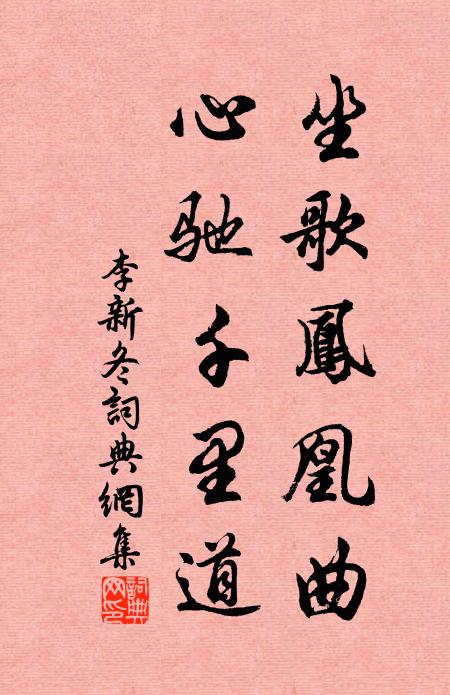 坐歌鳳凰曲
心馳千里道
李新冬詞典網集
詞典网印